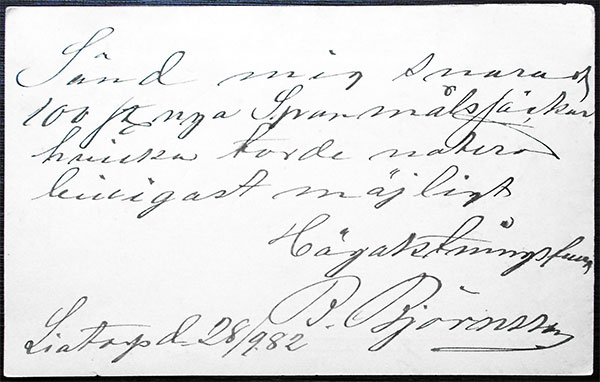 Sänd mig snarast
100 st nya Spanmålssäckar
hvilka torde notera
billigast möjligt
Högaktningsfullt
B. Björnsson
Liatorp d. 28/9 82